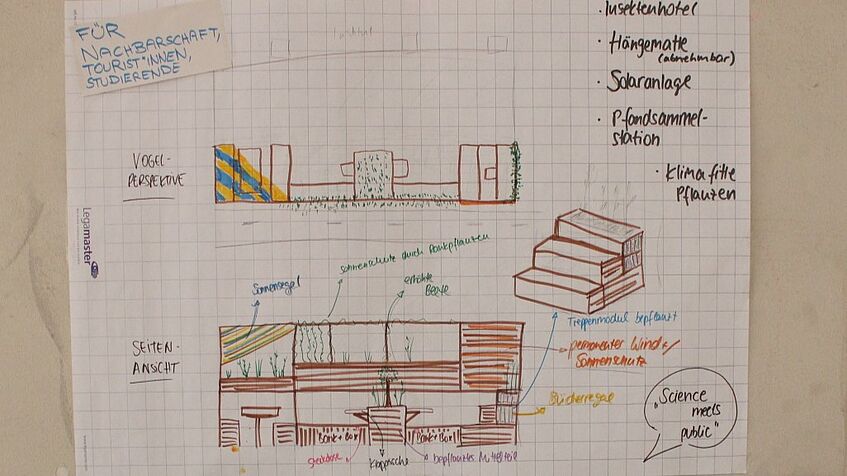 FÜR
NACHBARSCHAFT,
TOURIST*INNEN,
STUDIERENDE
· Insektenhotel
· Hängematte
(abnehmbar)
· Solaranlage
· Pfandsammel-
station
· Klimafitte
Pflanzen
VOGEL-
PERSPEKTIVE
Legamaster
Sonnensegel
Sonnenschutz durch Rankpflanzen
erhöhte
Beete
Treppenmodul bepflanzt
SEITEN-
ANSICHT
permanenter Wind-/
Sonnenschutz
Bücherregal
"Science
meets
public"
Bank + Box
Bank + Box
Klapptische
bepflanztes Mittelteil